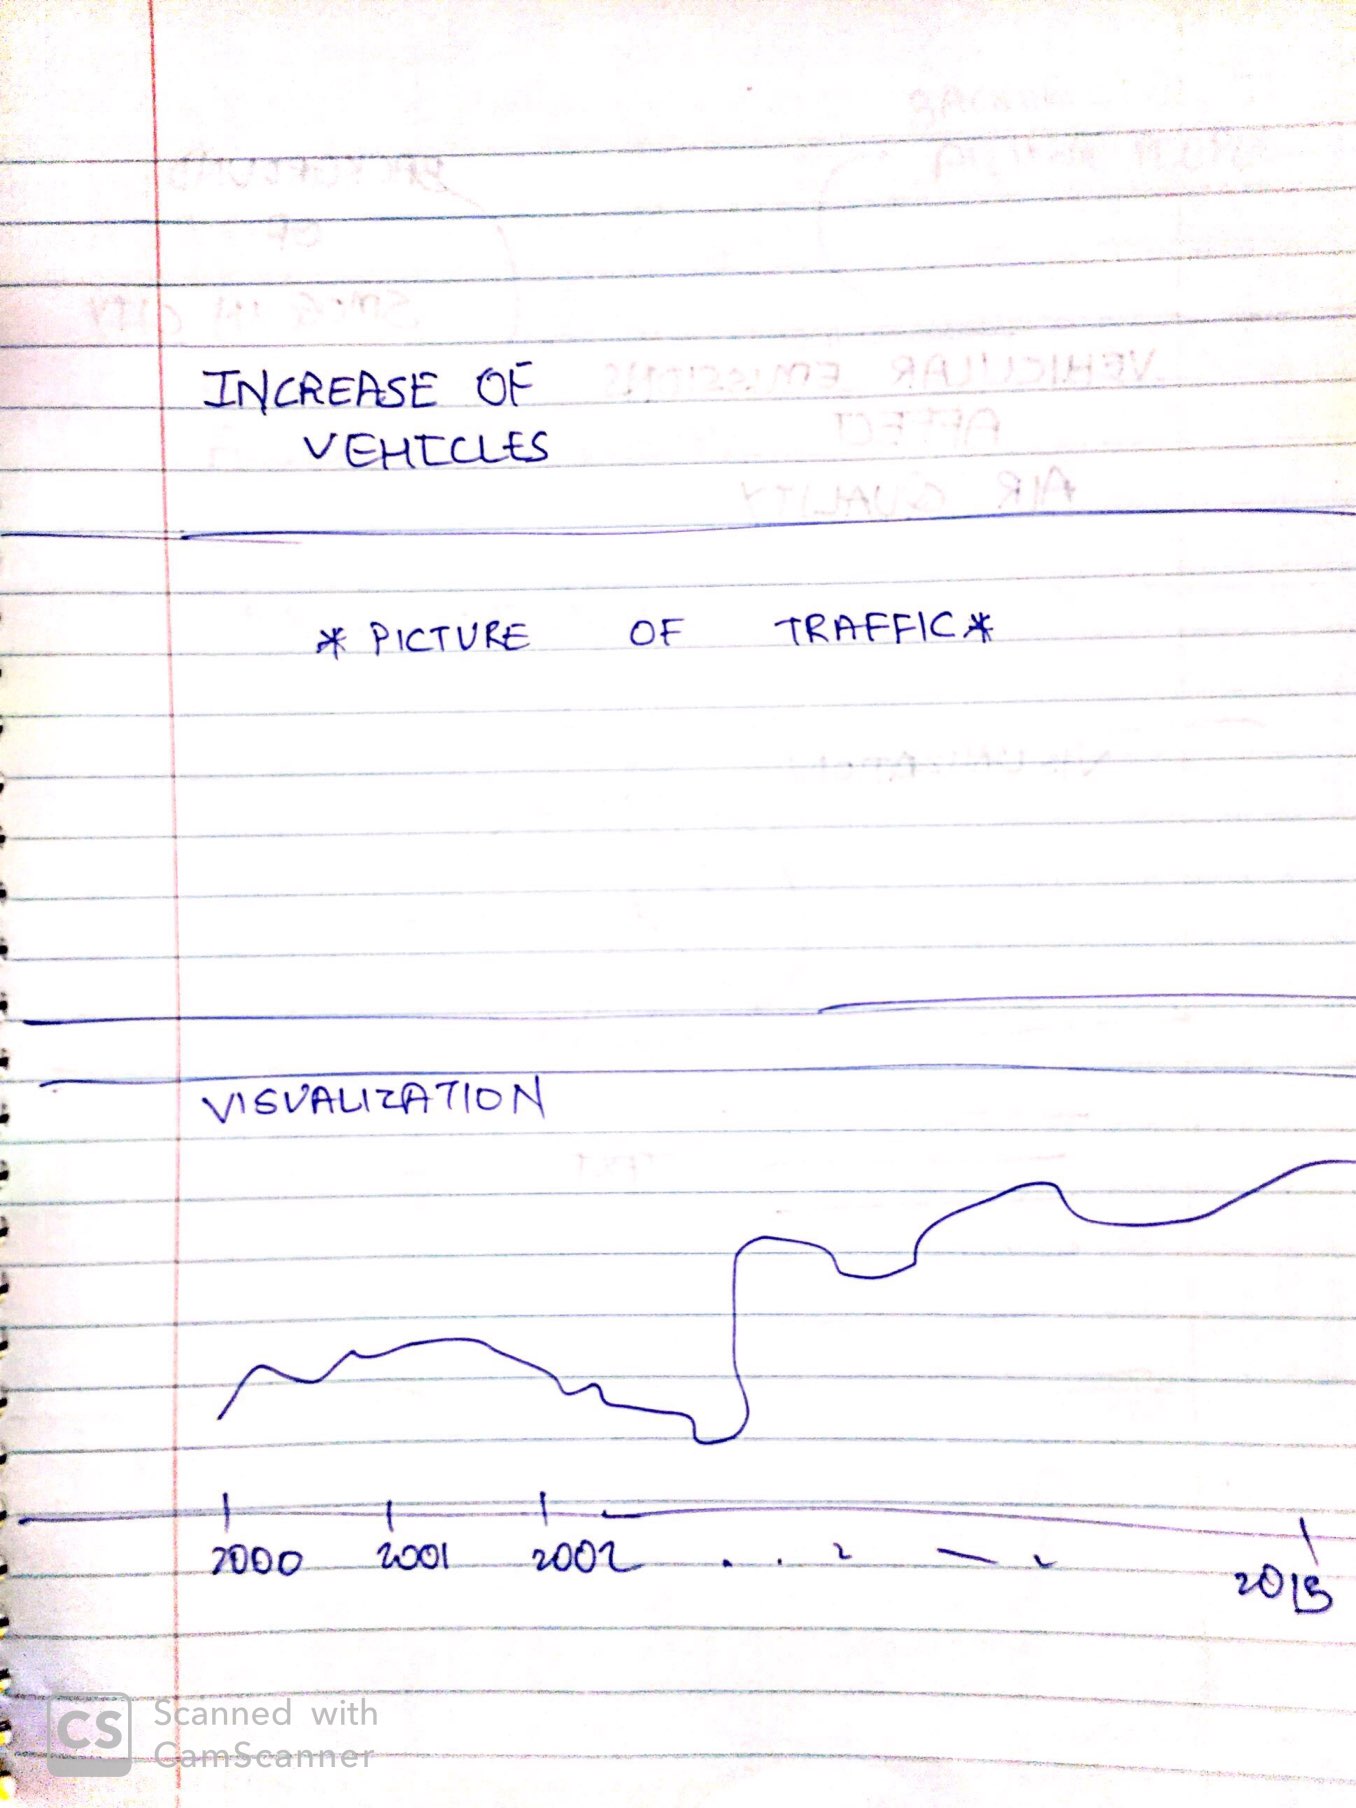 INCREASE OF
VEHICLES
* PICTURE OF TRAFFIC *
VISUALIZATION
2000 2001 2002 . . - — -
CS Scanned with
CamScanner